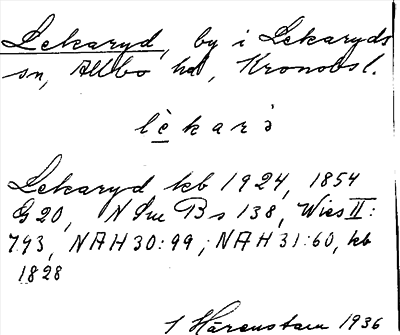 Lekaryd, by i Lekaryds
sn, Allbo hd, Kronobsl.
lèkarə̀
Lekaryd kb 1924, 1854
G20, NSve Bs 138, Wies II:
793, NAH30:99; NAH31:60, kb
1828
J Härenstam 1936